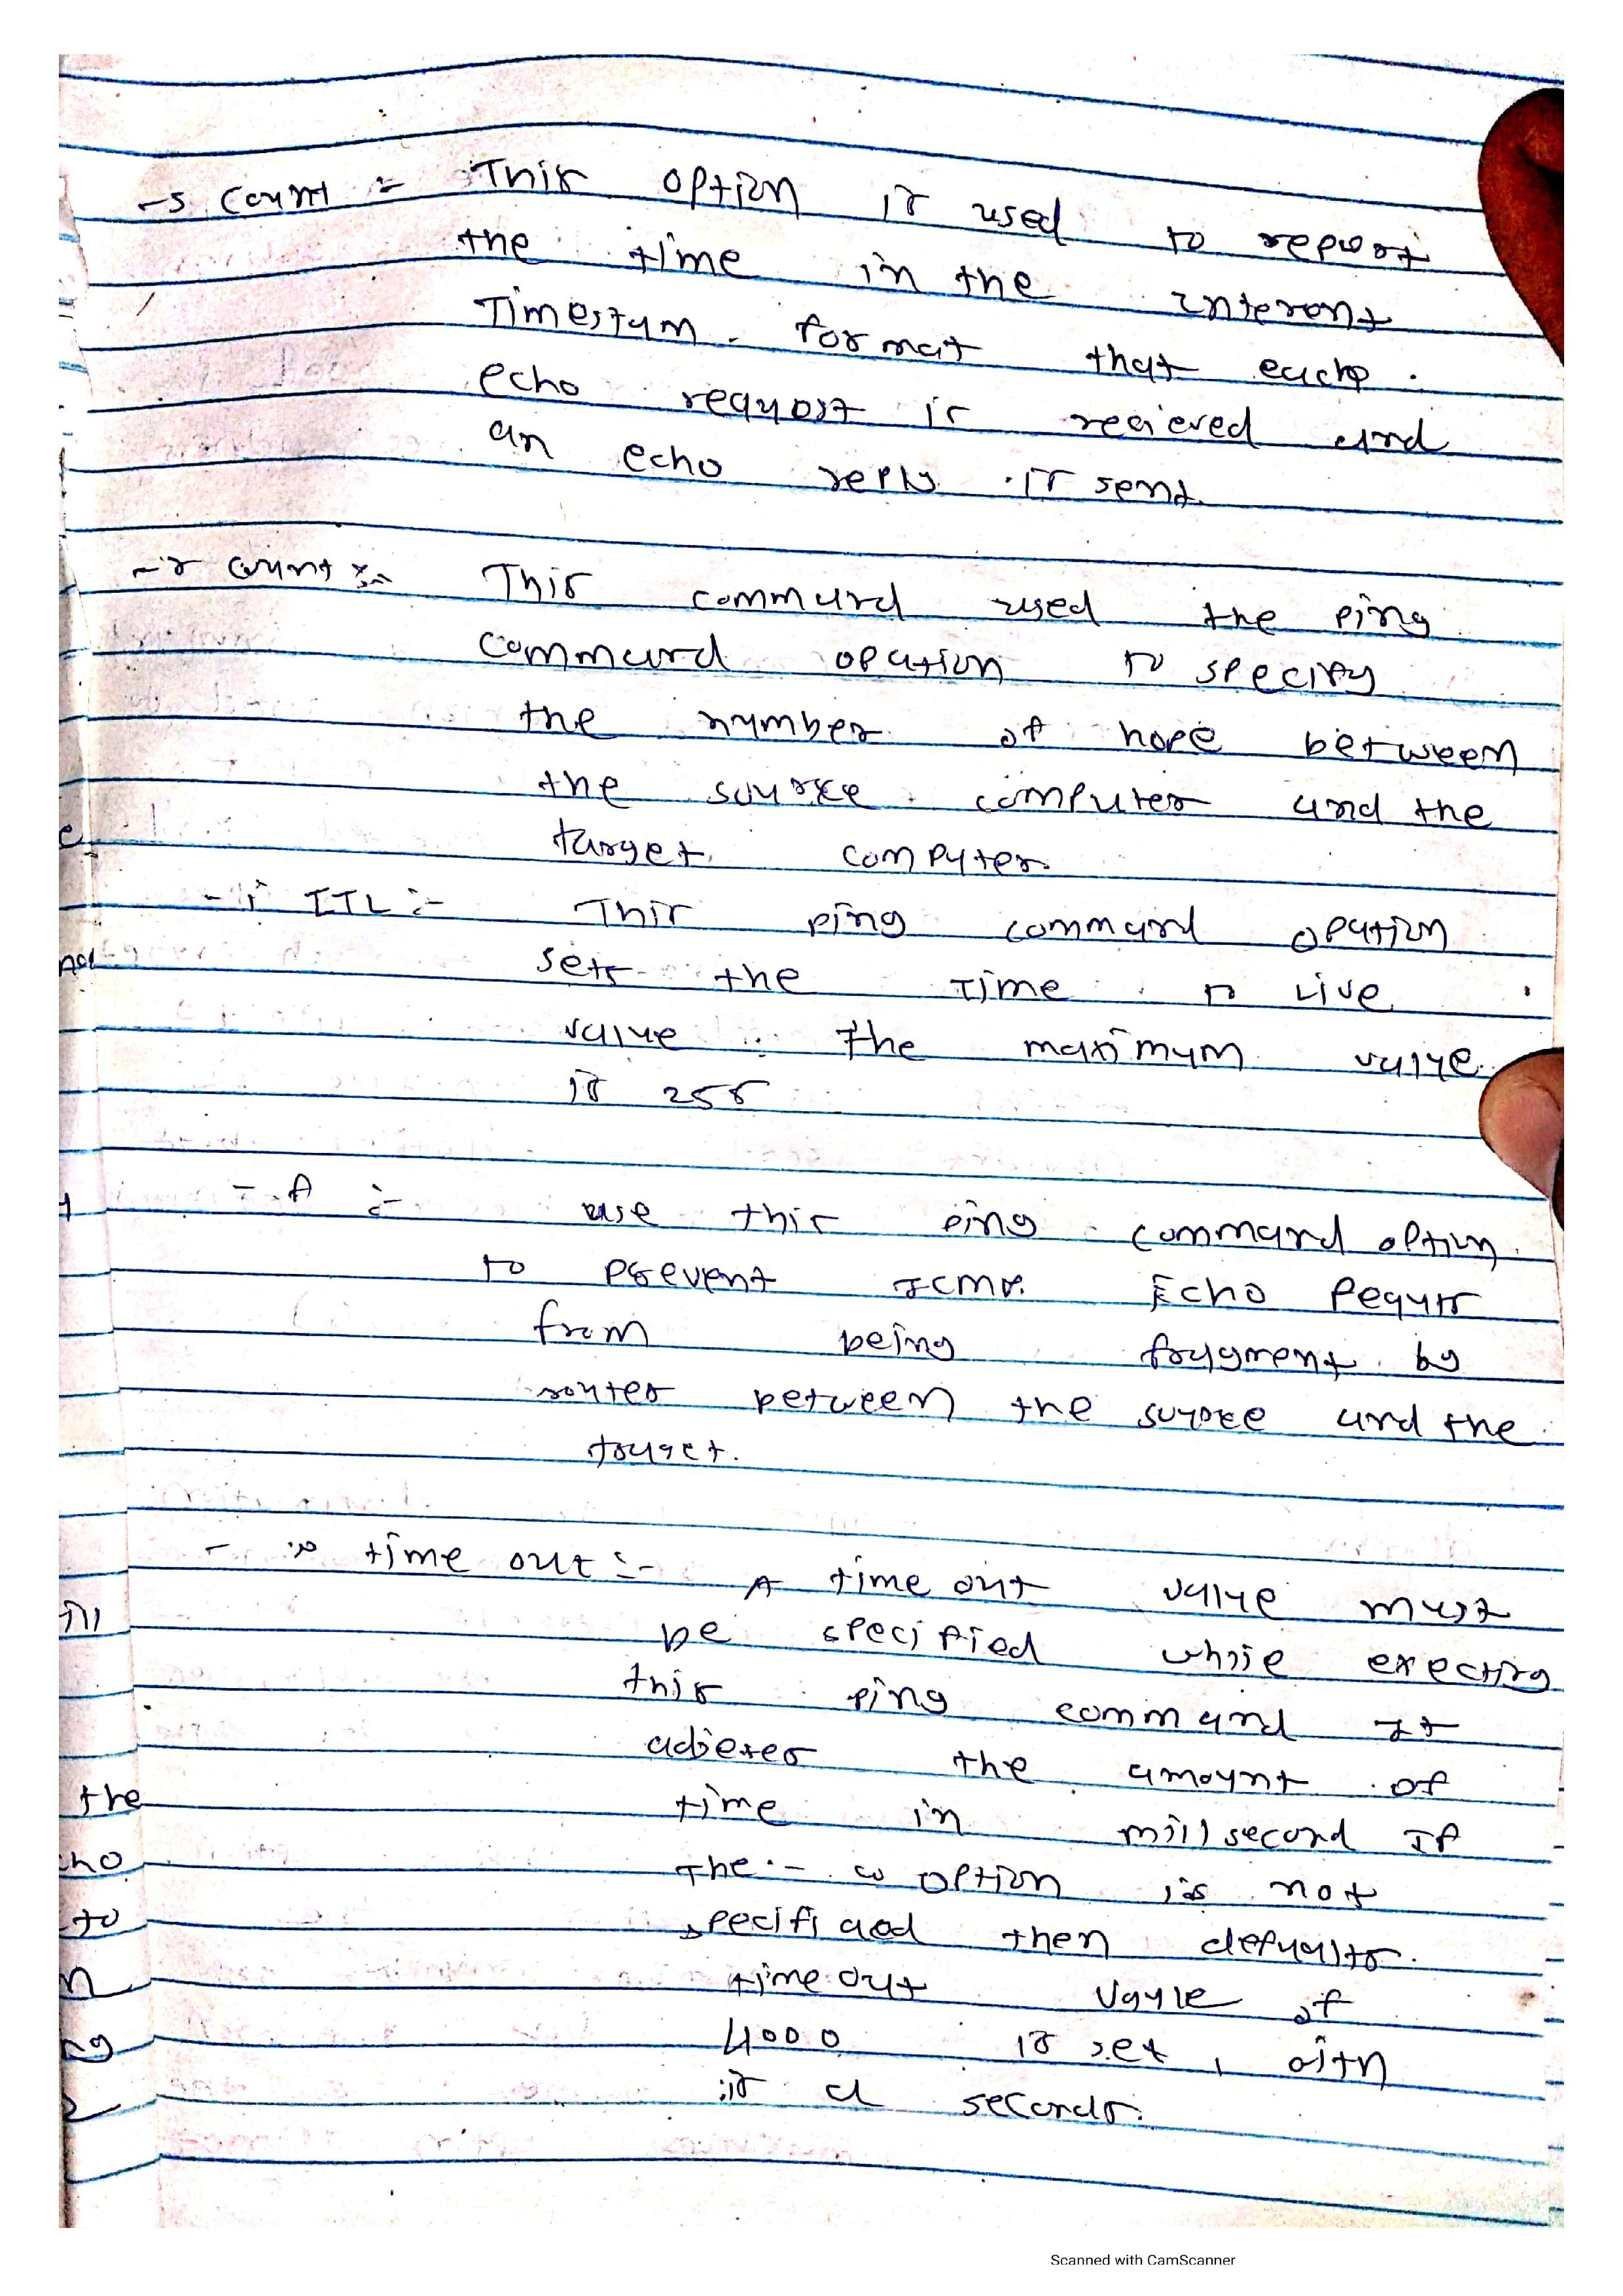 -s count :- This option is used to repoort
the time in the interent
Timestam. format that each
echo requost is recieved and
an echo reply is sent
-r count :- This command used the ping
command opation to specify
the number of hope between
the source computer and the
target computer
-i TTL :- This ping command opation
sets the Time to Live
value. The maximum value
is 255
- f :- use this ping command option
to prevent ICMP. Echo Requst
from being fragment by
router between the source and the
target.
- w time out :- A time out value must
be specified while execting
this ping command It
the amount of
time in millsecond If
The - w option is not
specifiaed then defaults
time out value of
4000 is set,
is seconds.
the
to
Scanned with CamScanner